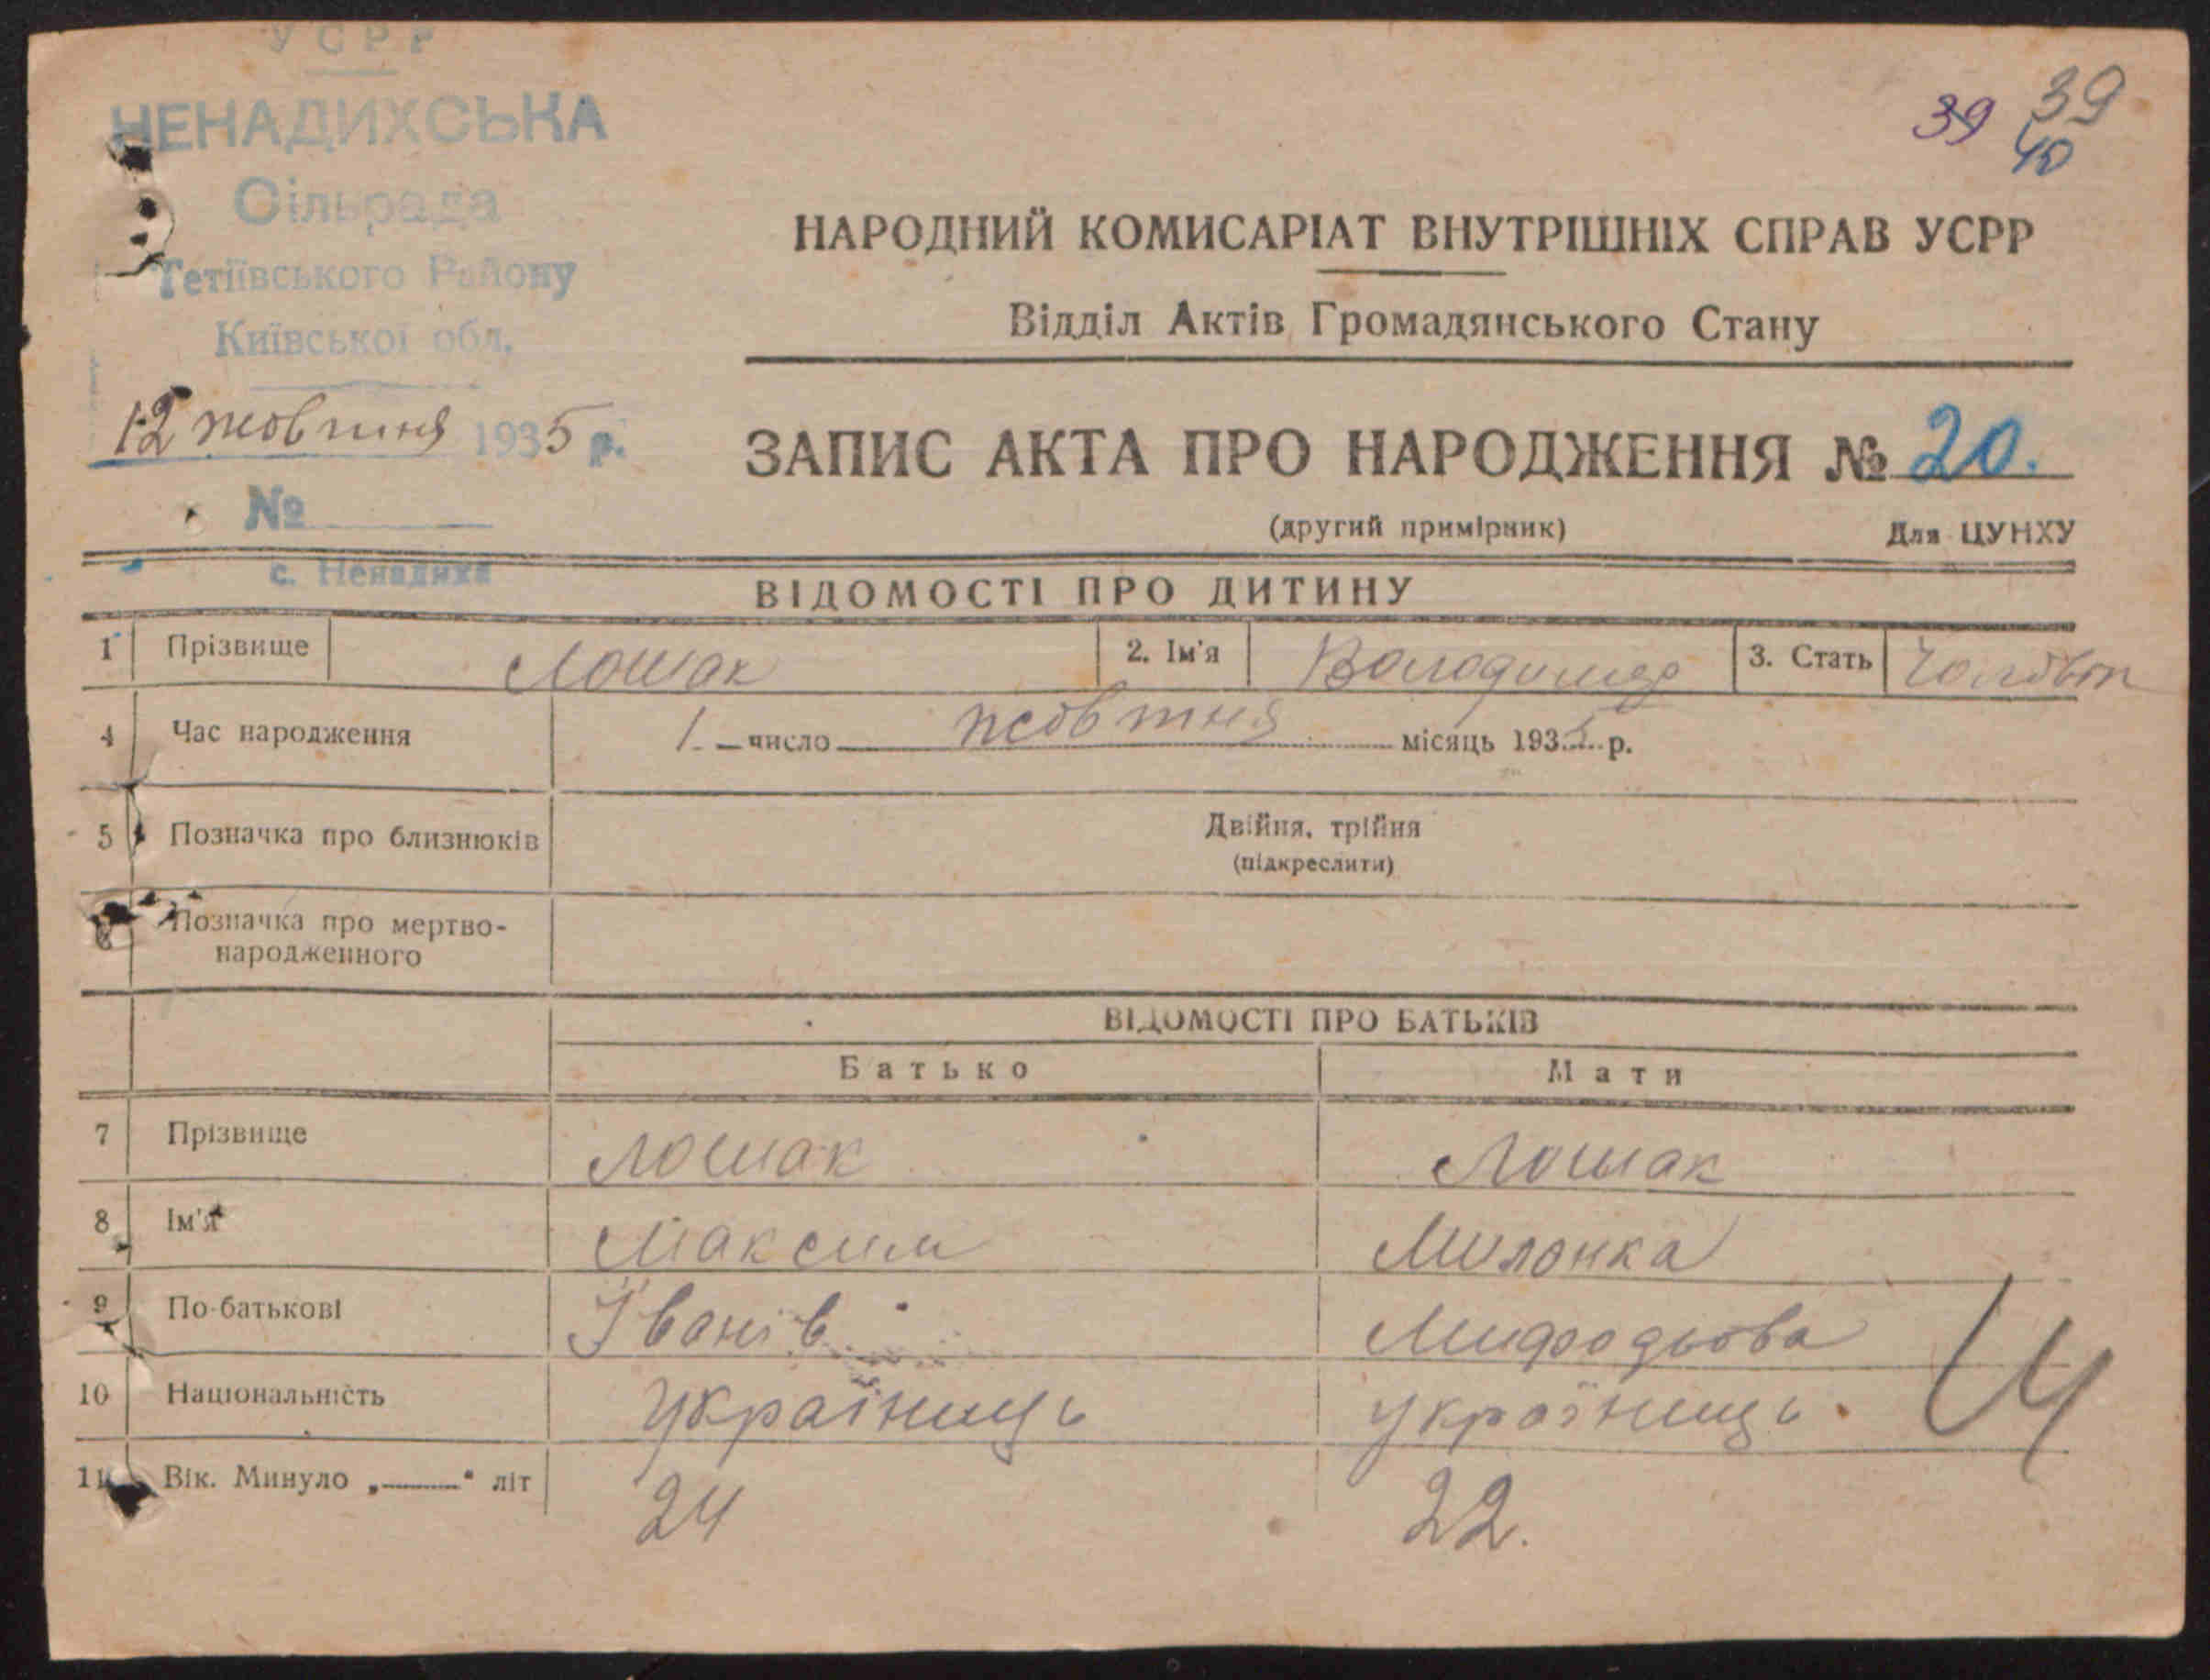 УСРР
НЕНАДИХСЬКА
Сільрада
Тетіївського Району
Київської обл.
12 жовтня 1935 р.
№
с. Ненадиха
39 39
40
НАРОДНИЙ КОМИСАРІАТ ВНУТРІШНІХ СПРАВ УСРР
Відділ Актів Громадянського Стану
ЗАПИС АКТА ПРО НАРОДЖЕННЯ № 20.
(другий примірник) Для ЦУНХУ
ВІДОМОСТІ ПРО ДИТИНУ
1 Прізвище Лошак 2. Ім'я Володимер 3. Стать
4 Час народження 1 число жовтня місяць 1935 р.
5 Позначка про близнюків Двійня, трійня
(підкреслити)
6 Позначка про мертво-
народженного
ВІДОМОСТІ ПРО БАТЬКІВ
Батько Мати
7 Прізвище Лошак Лошак
8 Ім'я Максим Милонка
9 По-батькові Іванів Мифодьова
10 Національність українець українець.
11 Вік. Минуло „ “ літ 24 22.